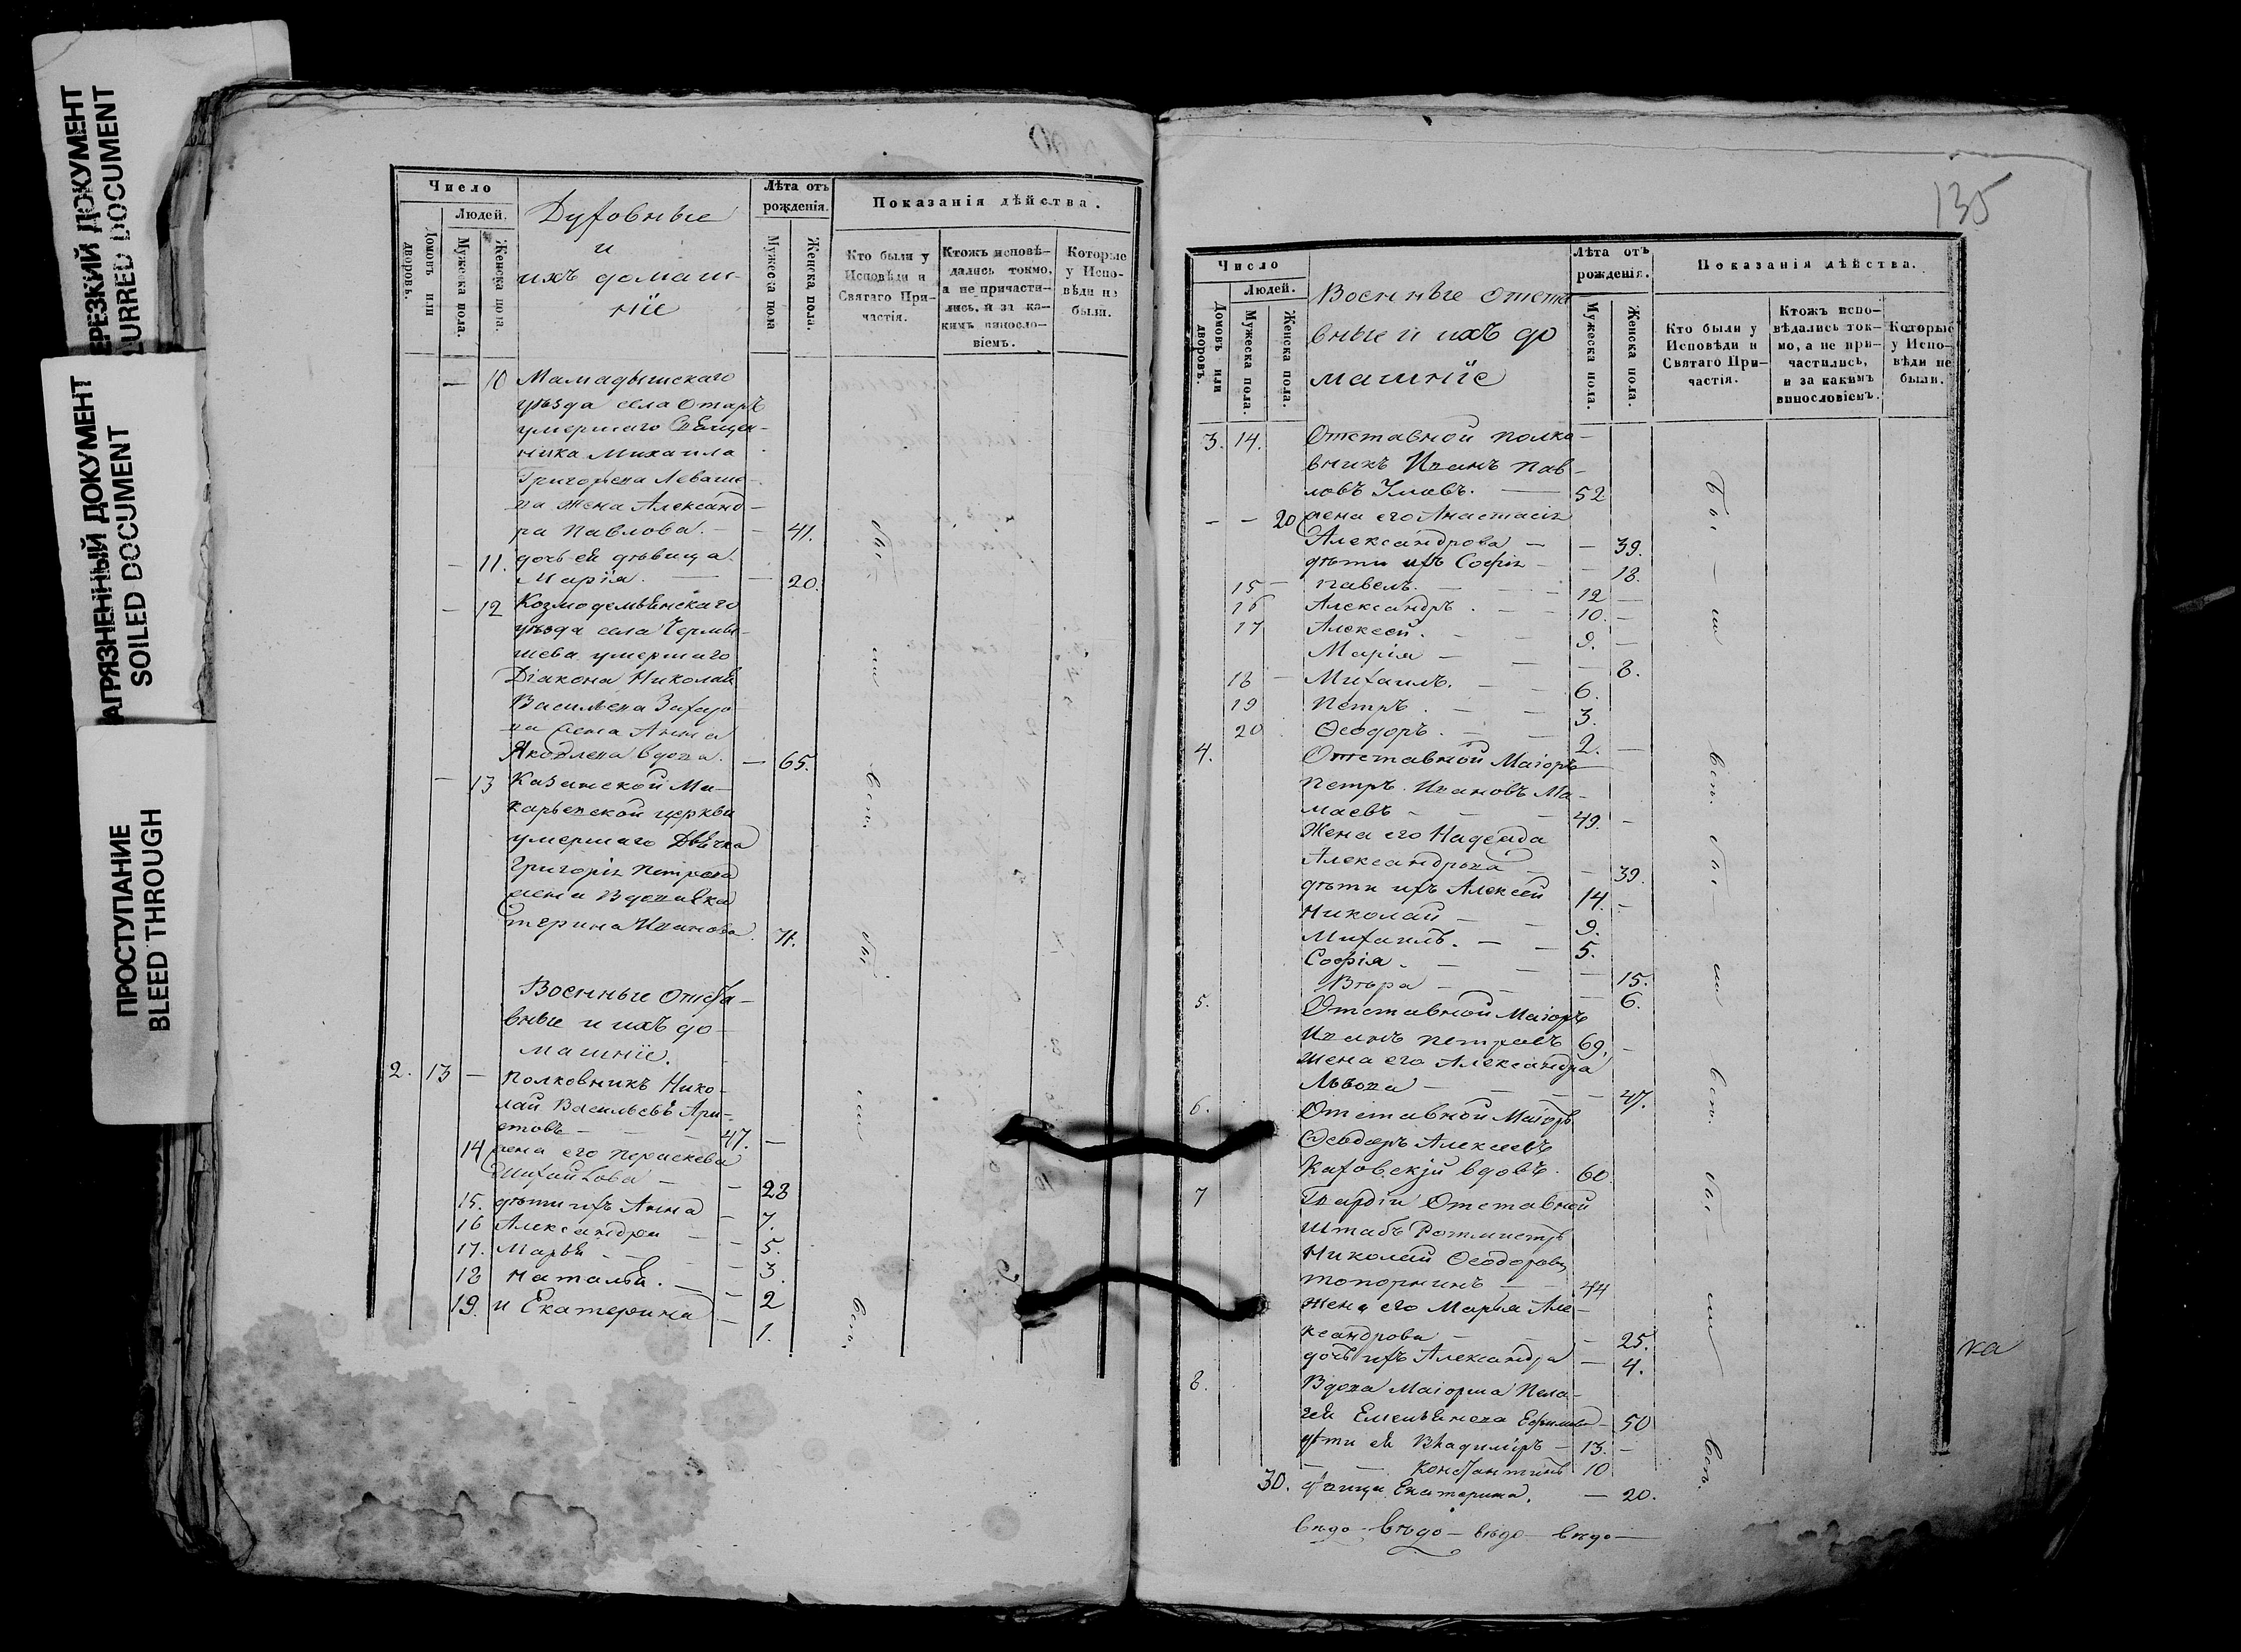 НЕРЕЗКИЙ ДОКУМЕНТ
BLURRED DOCUMENT
ЗАГРЯЗНЕННЫЙ ДОКУМЕНТ
SOILED DOCUMENT
ПРОСТУПАНИЕ
BLEED THROUGH
Число
Людей.
Домовъ или дворовъ.
Мужеска пола.
Женска пола.
Духовные
и
ихъ домаш-
ніе
Лѣта отъ рожденія.
Мужеска пола
Женска пола.
Показанія дѣйства.
Кто были у Исповѣди и Святаго При-частія.
Ктожъ исповѣ-дались токмо, а не причасти-лись, и за ка-кимъ виносло-віемъ.
Которые у Испо-вѣди не были.
— 10 Мамадышскаго
уѣзда села Отаръ
умершаго Священ-
ника Михаила
Григорьева Леваше-
ва жена Александ-
ра Павлова. — — 41.
— 11. дочь ея дѣвица
Марія. — — 20.
— 12 Козмодемьянскаго
уѣзда села Чермы-
шева умершаго
Діакона Николая
Васильева
ва жена Анна
Яковлева вдова. — 65.
— 13 Казанской Ма-
карьевской церкви
умершаго Дьячка
Григорія Петрова
жена Вдова Ека
терина Иванова. 71.
Военные Отста-
вные и ихъ до-
машніе.
2. 13 — Полковникъ Нико-
лай Васильевъ Ари-
стовъ — — — 47. —
14 жена его Параскева
Михайлова — — 28
15. дѣти ихъ Анна — 7.
16 Александра — — 5.
17. Марья — — — 3.
18 Наталья. — — 2
19. и Екатерина — 1.
бы-
ли
всѣ.
бы-
ли
всѣ.
135
Число
Людей.
Домовъ или дворовъ.
Мужеска пола.
Женска пола.
Военные Отста
вные и ихъ до
машніе
Лѣта отъ рожденія.
Мужеска пола.
Женска пола.
Показанія дѣйства.
Кто были у Исповѣди и Святаго При-частія.
Ктожъ испо-вѣдались ток-мо, а не при-частились, и за какимъ винословіемъ.
Которые у Испо-вѣди не были.
3. 14. Отставной полко-
вникъ Иванъ Пав-
ловъ — 52
— — 20 жена его Анастасія
Александрова — — 39.
дѣти ихъ Софія — — 18.
15 — Павелъ. — — 12 —
16 Александръ. — — 10. —
17 Алексей. — — 9. —
Марія — — — 8.
18 — Михаилъ. — — 6.
19 Петръ. — — 3.
20 Ѳеодоръ. — — 2. —
4. Отставной Маіоръ
Петръ Ивановъ Ма-
маевъ — — — 49. —
Жена его Надежда
Александрова — — 39.
дѣти ихъ Алексей 14. —
Николай — — 9.
Михаилъ. — — 5.
Софія. — — — 15.
Вѣра — — — 6.
5. Отставной Маіоръ
Иванъ Петровъ 69. —
жена его Александра
Львова — — — 47.
6. Отставной Маіоръ
Ѳеодоръ Алексеевъ
Каховскій вдовъ. 60
7 Гвардіи Отставной
Штабъ Ротмистръ
Николай Ѳеодоровъ
Топорнинъ — — 44
жена его Марія Але-
ксандрова — — — 25.
дочь ихъ Александра — 4.
8. Вдова Маіорша Пела-
гея Емельянова Ефимова — 50
дѣти ея Владиміръ — 13. —
— — Константинъ 10
30. дѣвица Екатерина. — 20.
бы-
ли
всѣ.
бы-
ли
всѣ.
бы-
ли
всѣ.
ка
вѣдо — вѣдо — вѣдо — вѣдо —